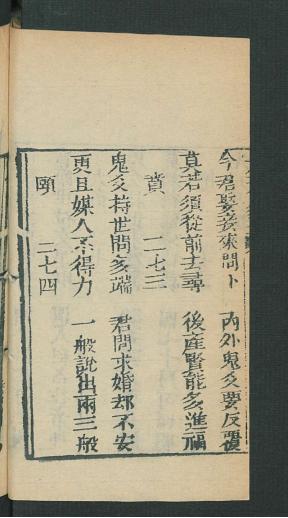 今君娶妾來問卜　內外鬼爻要反覆
莫若須從前去尋　後産賢能多進福
賁　二七三
鬼爻持世問多端　君問求婚却不安
更且媒人不得力　一般說出兩三般
頤　二七四